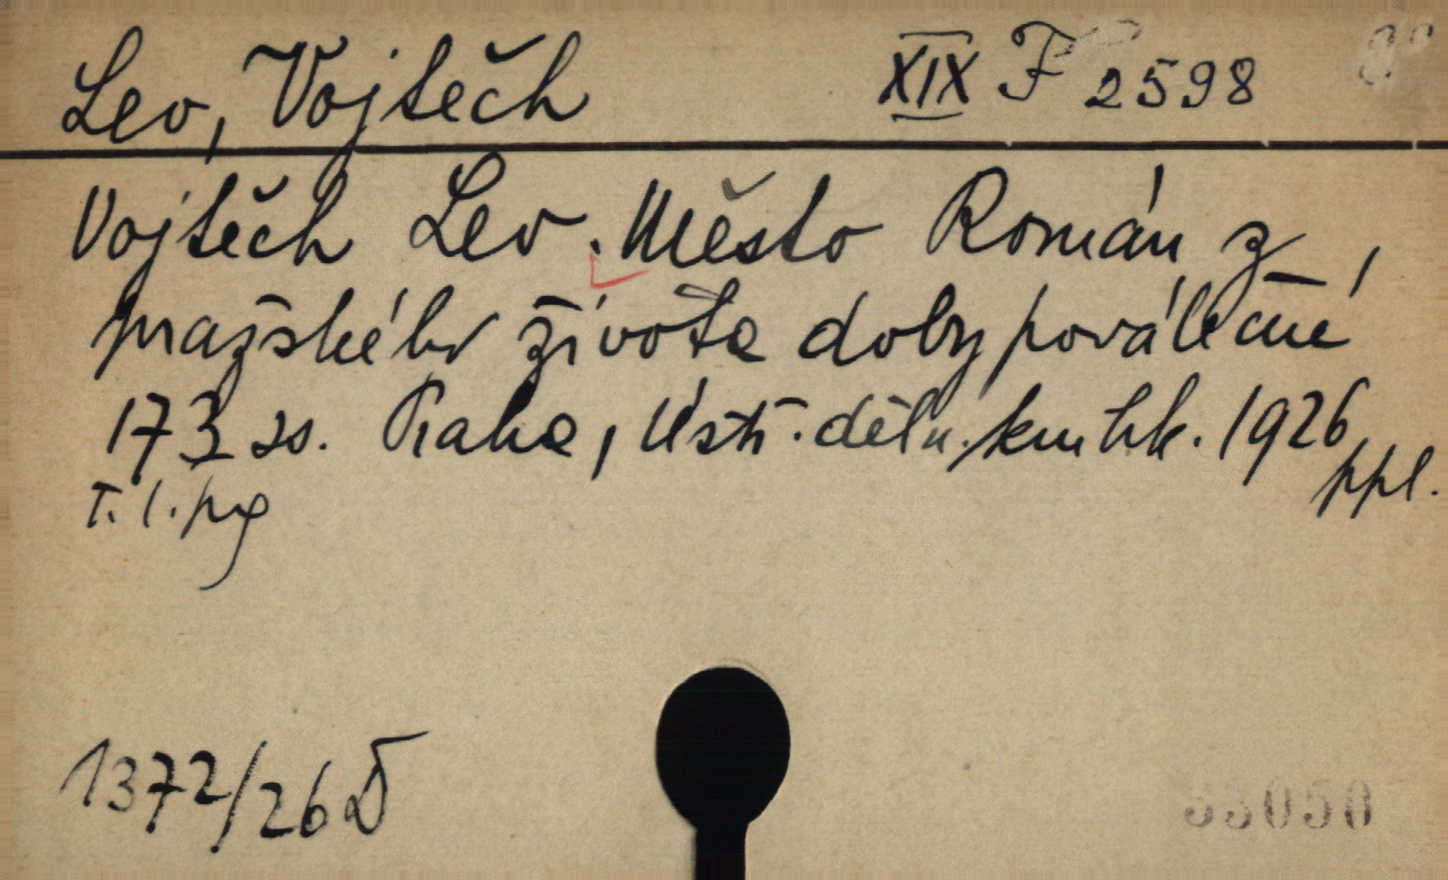 Lev, Vojtěch XIX F 2598 8°
Vojtěch Lev. Město Román z
pražského života doby poválečné
173 ss. Praha, Ústř. děln. knihk. 1926
ppl.
T. l. pg
1372/26 D
33050